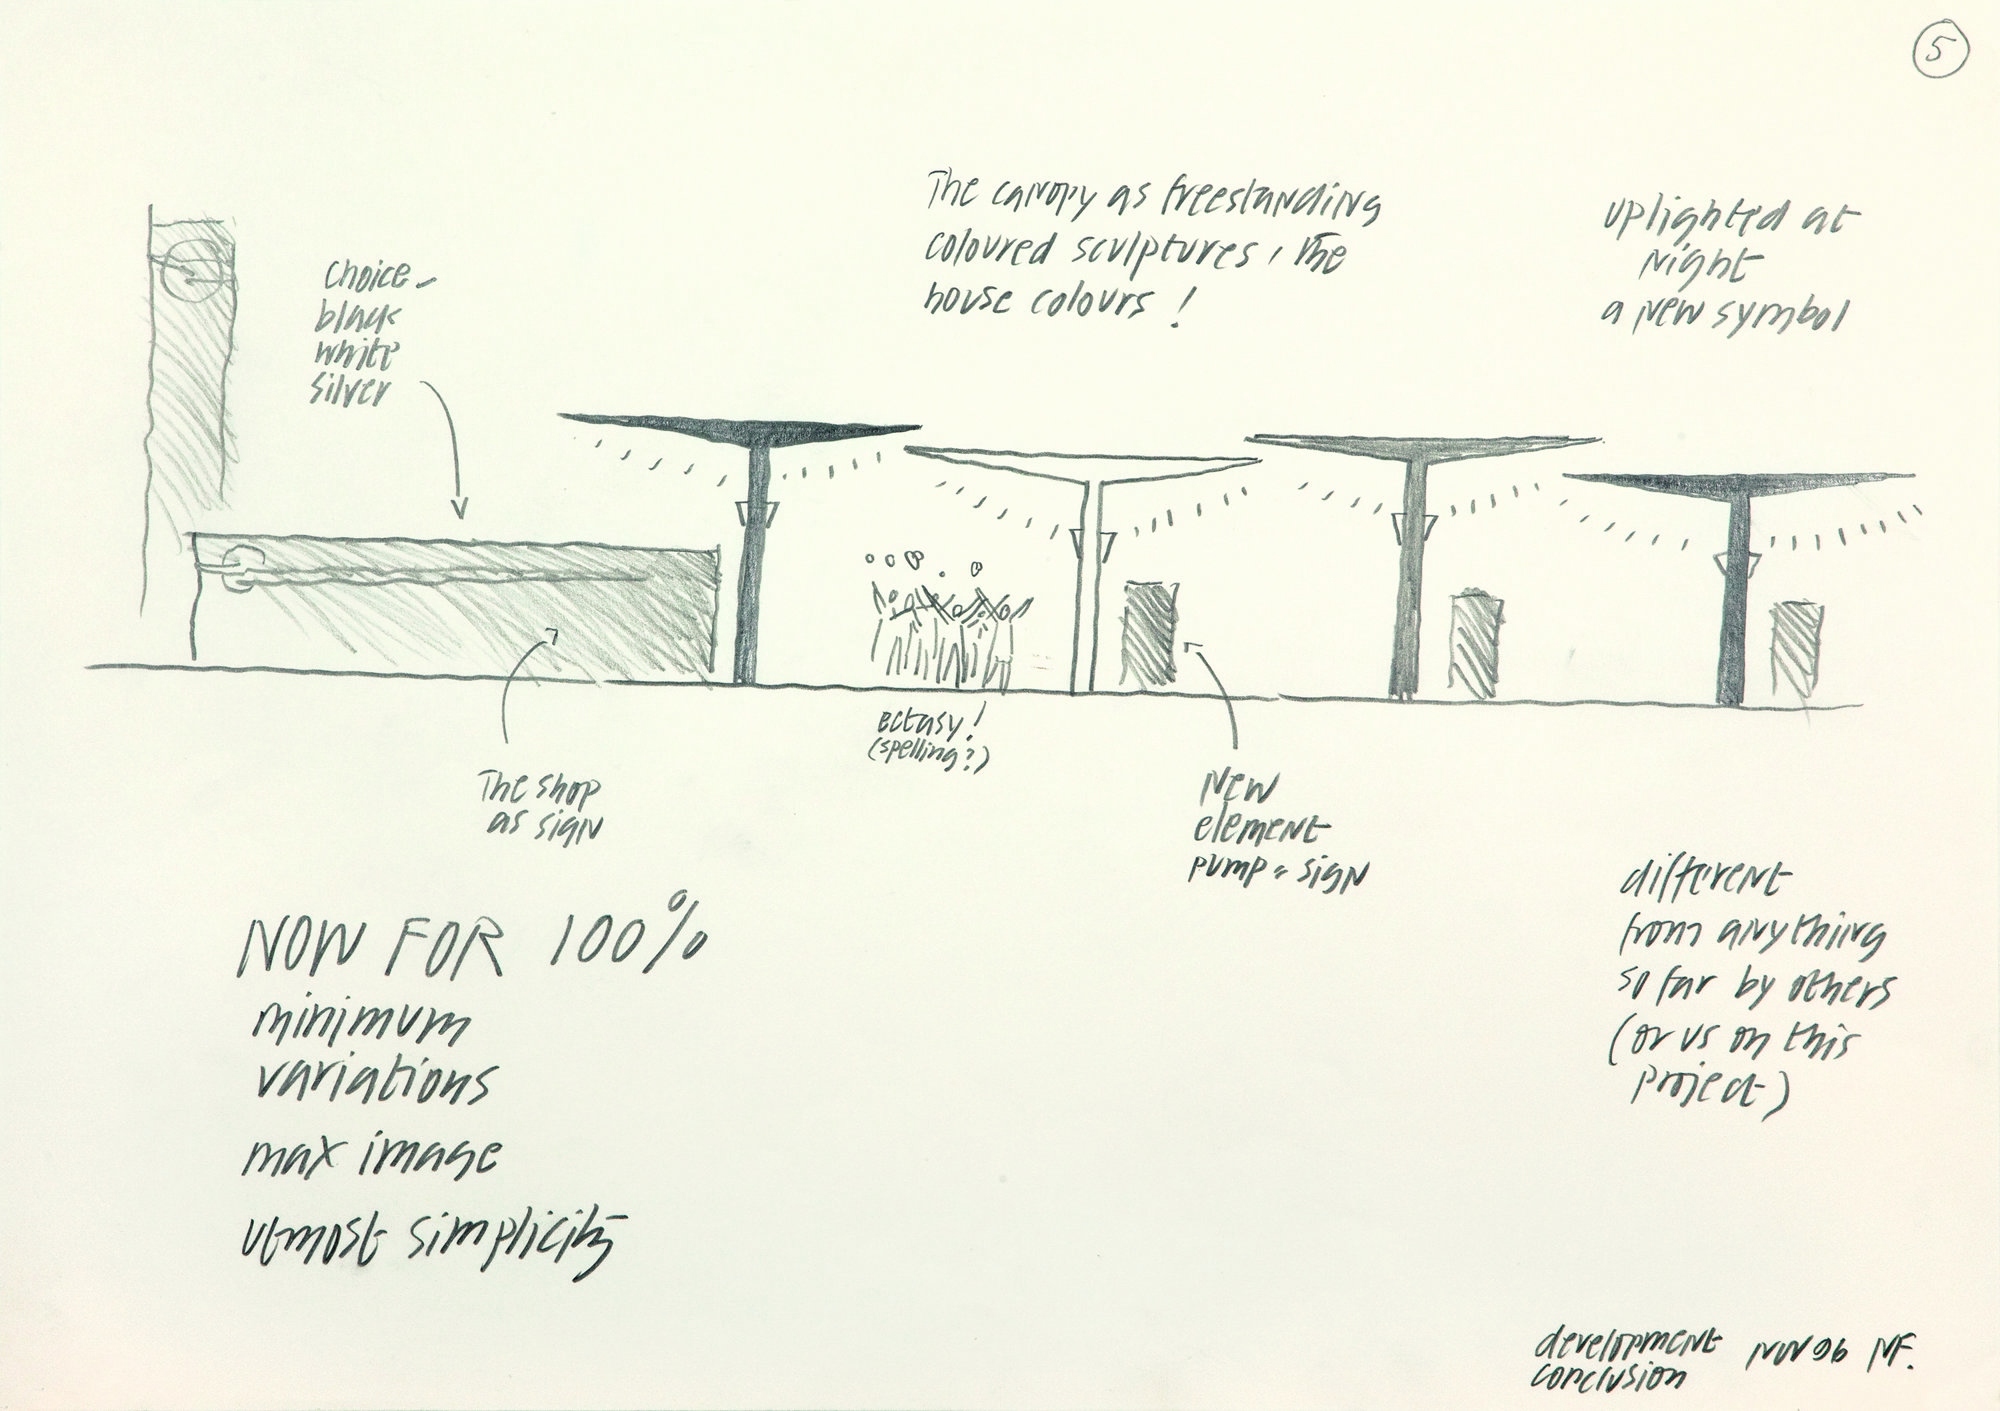 5
The canopy as freestanding
coloured sculptures, the
house colours!
uplighted at
night
a new symbol
choice -
black
white
silver
ectasy!
(spelling?)
The shop
as sign
New
element
pump = sign
NOW FOR 100%
minimum
variations
max image
utmost simplicity
different
from anything
so far by others
(or us on this
project)
development
conclusion
NOV 96 NF.